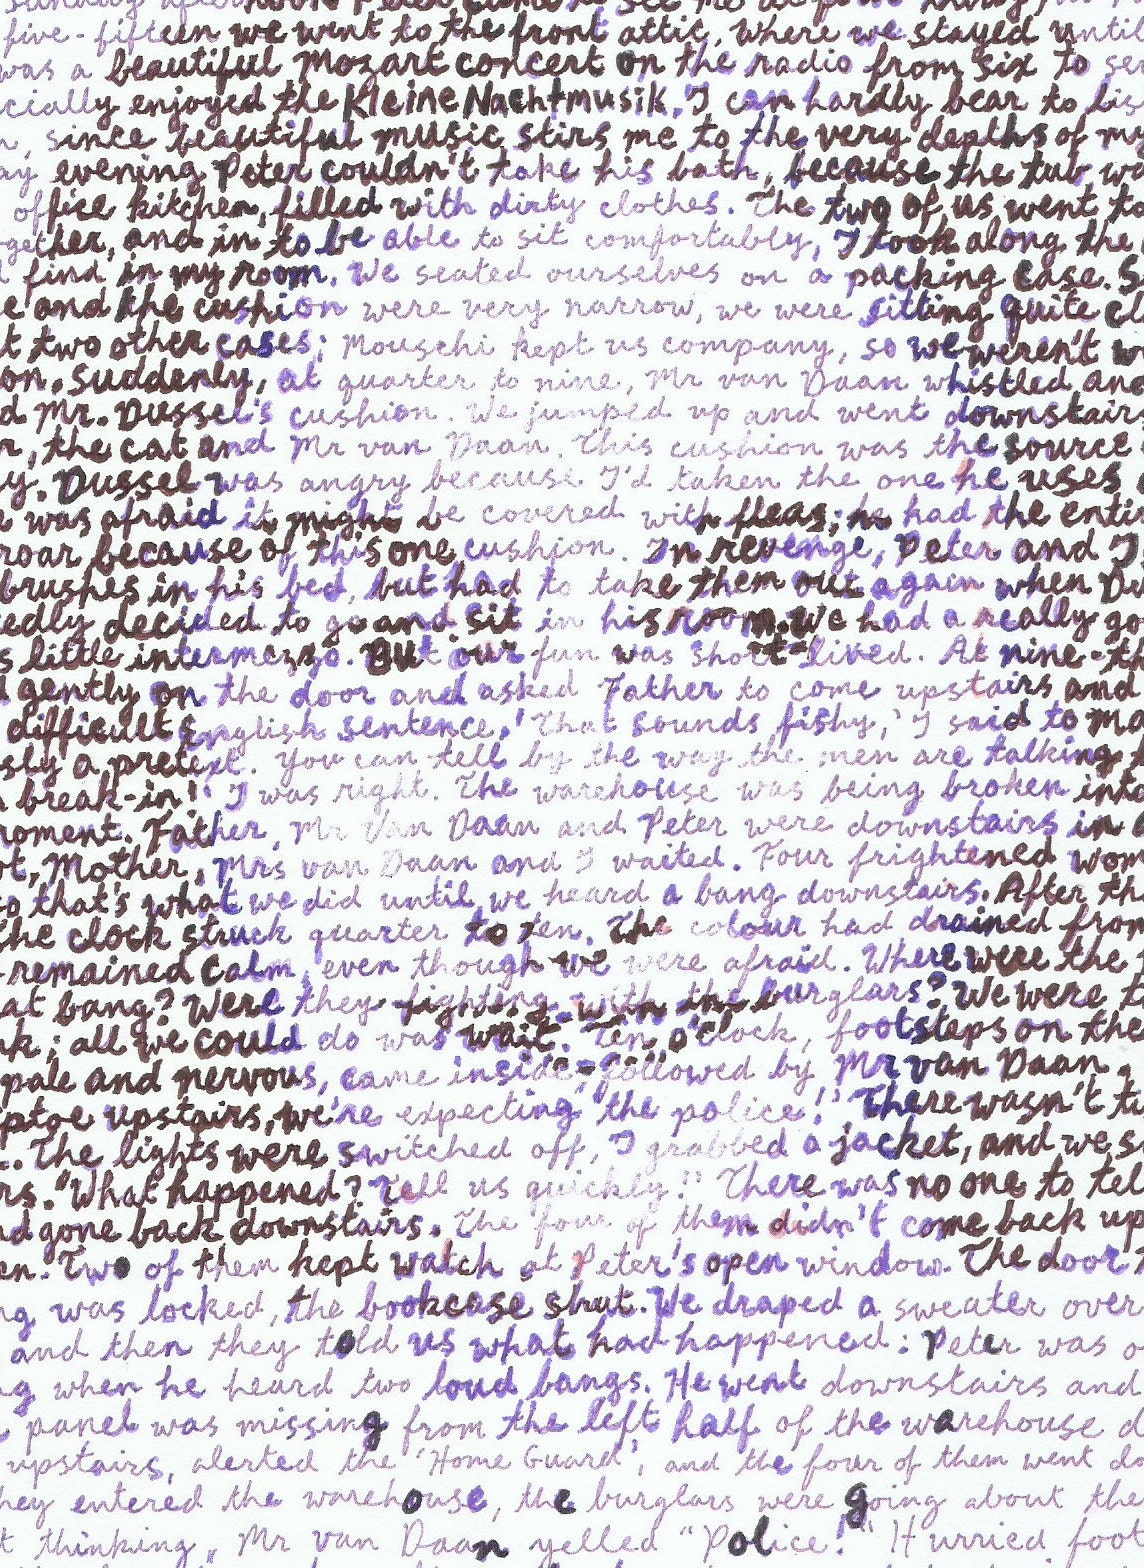 five-fifteen we went to the front attic, where we stayed until
was a beautiful Mozart concert on the radio from six to
cially enjoyed the Kleine Nachtmusik. I can hardly bear to
since beautiful music stirs me to the very depths of my
evening Peter couldn't take his bath, because the tub
office kitchen, filled with dirty clothes. The two of us went to
gether, and in to be able to sit comfortably, I took along the
find in my room. We seated ourselves on a packing case.
e and the cushion were very narrow, we were sitting quite cl
t two other cases; Mouschi kept us company, so we weren't
on. Suddenly, at quarter to nine, Mr van Daan whistled and
d Mr. Dussel's cushion. We jumped up and went downstairs
, the cat and Mr van Daan. This cushion was the source
y. Dussel was angry because I'd taken the one he uses
was afraid it might be covered with fleas; he had the enti
roar because of this one cushion. In revenge, Peter and I
brushes in his bed, but had to take them out again when Du
edly decided to go and sit in his room. We had a really go
s little intermezzo. But our fun was short-lived. At nine-th
gently on the door and asked Father to come upstairs and
difficult English sentence. 'That sounds fishy,' I said to Ma
sly a pretext. You can tell by the way the men are talking
break-in!' I was right. The warehouse was being broken into
moment. Father, Mr Van Daan and Peter were downstairs in
Mother, Mrs van Daan and I waited. Four frightened wom
o that's what we did until we heard a bang downstairs. After th
the clock struck quarter to ten. The colour had drained from
remained calm, even though we were afraid. Where were the
at bang? Were they fighting with the burglars? We were
nk; all we could do was wait. Ten o'clock, footsteps on the
pale and nervous, came inside, followed by Mr van Daan.
ptoe upstairs, we're expecting the police!' There wasn't
.. The lights were switched off, I grabbed a jacket, and we s
rs. "What happened? Tell us quickly!" There was no one to tel
d gone back downstairs. The four of them didn't come back up
en. Two of them kept watch at Peter's open window. The door
ng was locked, the bookcase shut. We draped a sweater over
and then they told us what had happened: Peter was o
g when he heard two loud bangs. He went downstairs and
panel was missing from the left half of the warehouse d
upstairs, alerted the 'Home Guard', and the four of them went do
hey entered the warehouse, the burglars were going about the
t thinking, Mr van Daan yelled "Police!" Hurried foot